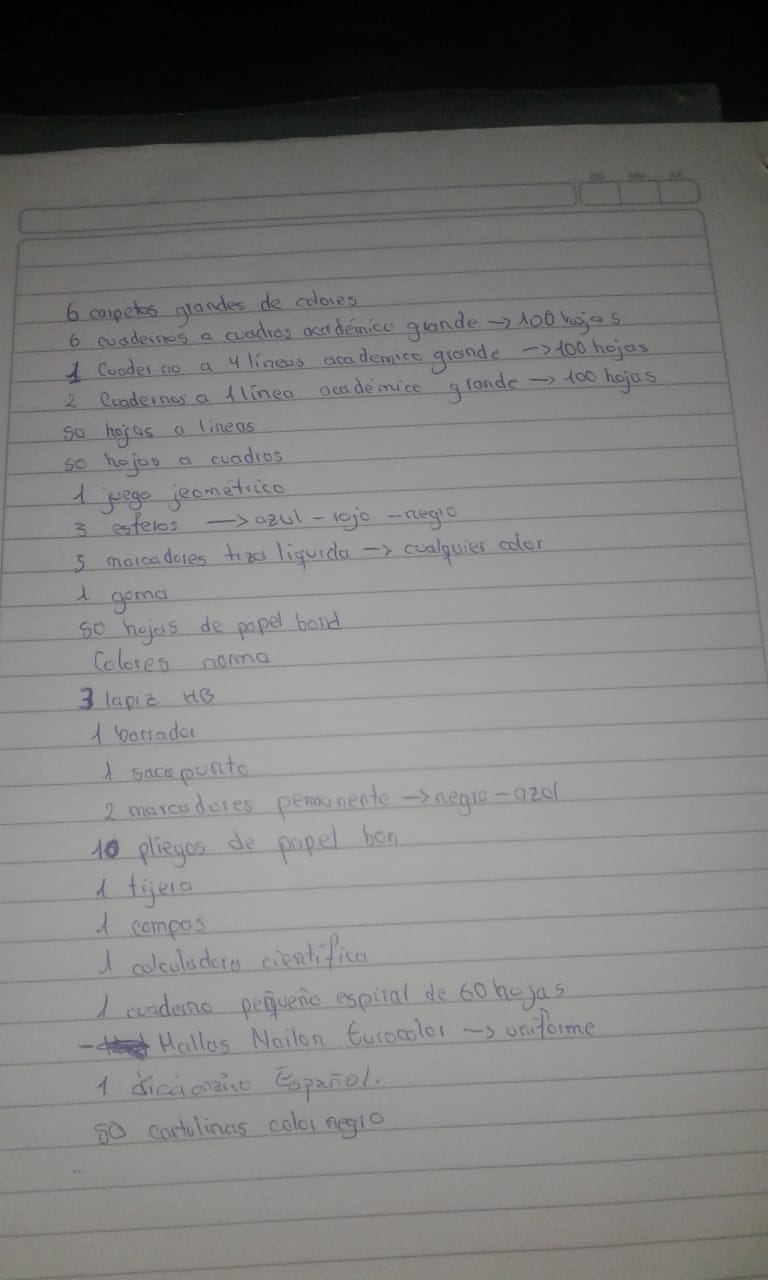 DD MM AA
6 carpetas grandes de colores
6 cuadernos a cuadros académico grande → 100 hojas
1 Cuaderno a 4 líneas academico grande → 100 hojas
2 Cuadernos a 1 línea académico grande → 100 hojas
50 hojas a lineas
50 hojas a cuadros
1 juego jeométrico
3 esferos → azul - rojo - negro
3 marcadores tiza liquida → cualquier color
1 goma
50 hojas de papel bond
Colores norma
3 lapiz HB
1 borrador
1 sacapunta
2 marcadores permanente → negro - azul
10 pliegos de papel bon
1 tijera
1 compas
1 calculadora científica
1 cuaderno pequeño espiral de 60 hojas
- Mallas Nailon Eurocolor → uniforme
1 diccionario Español.
50 cartulinas color negro